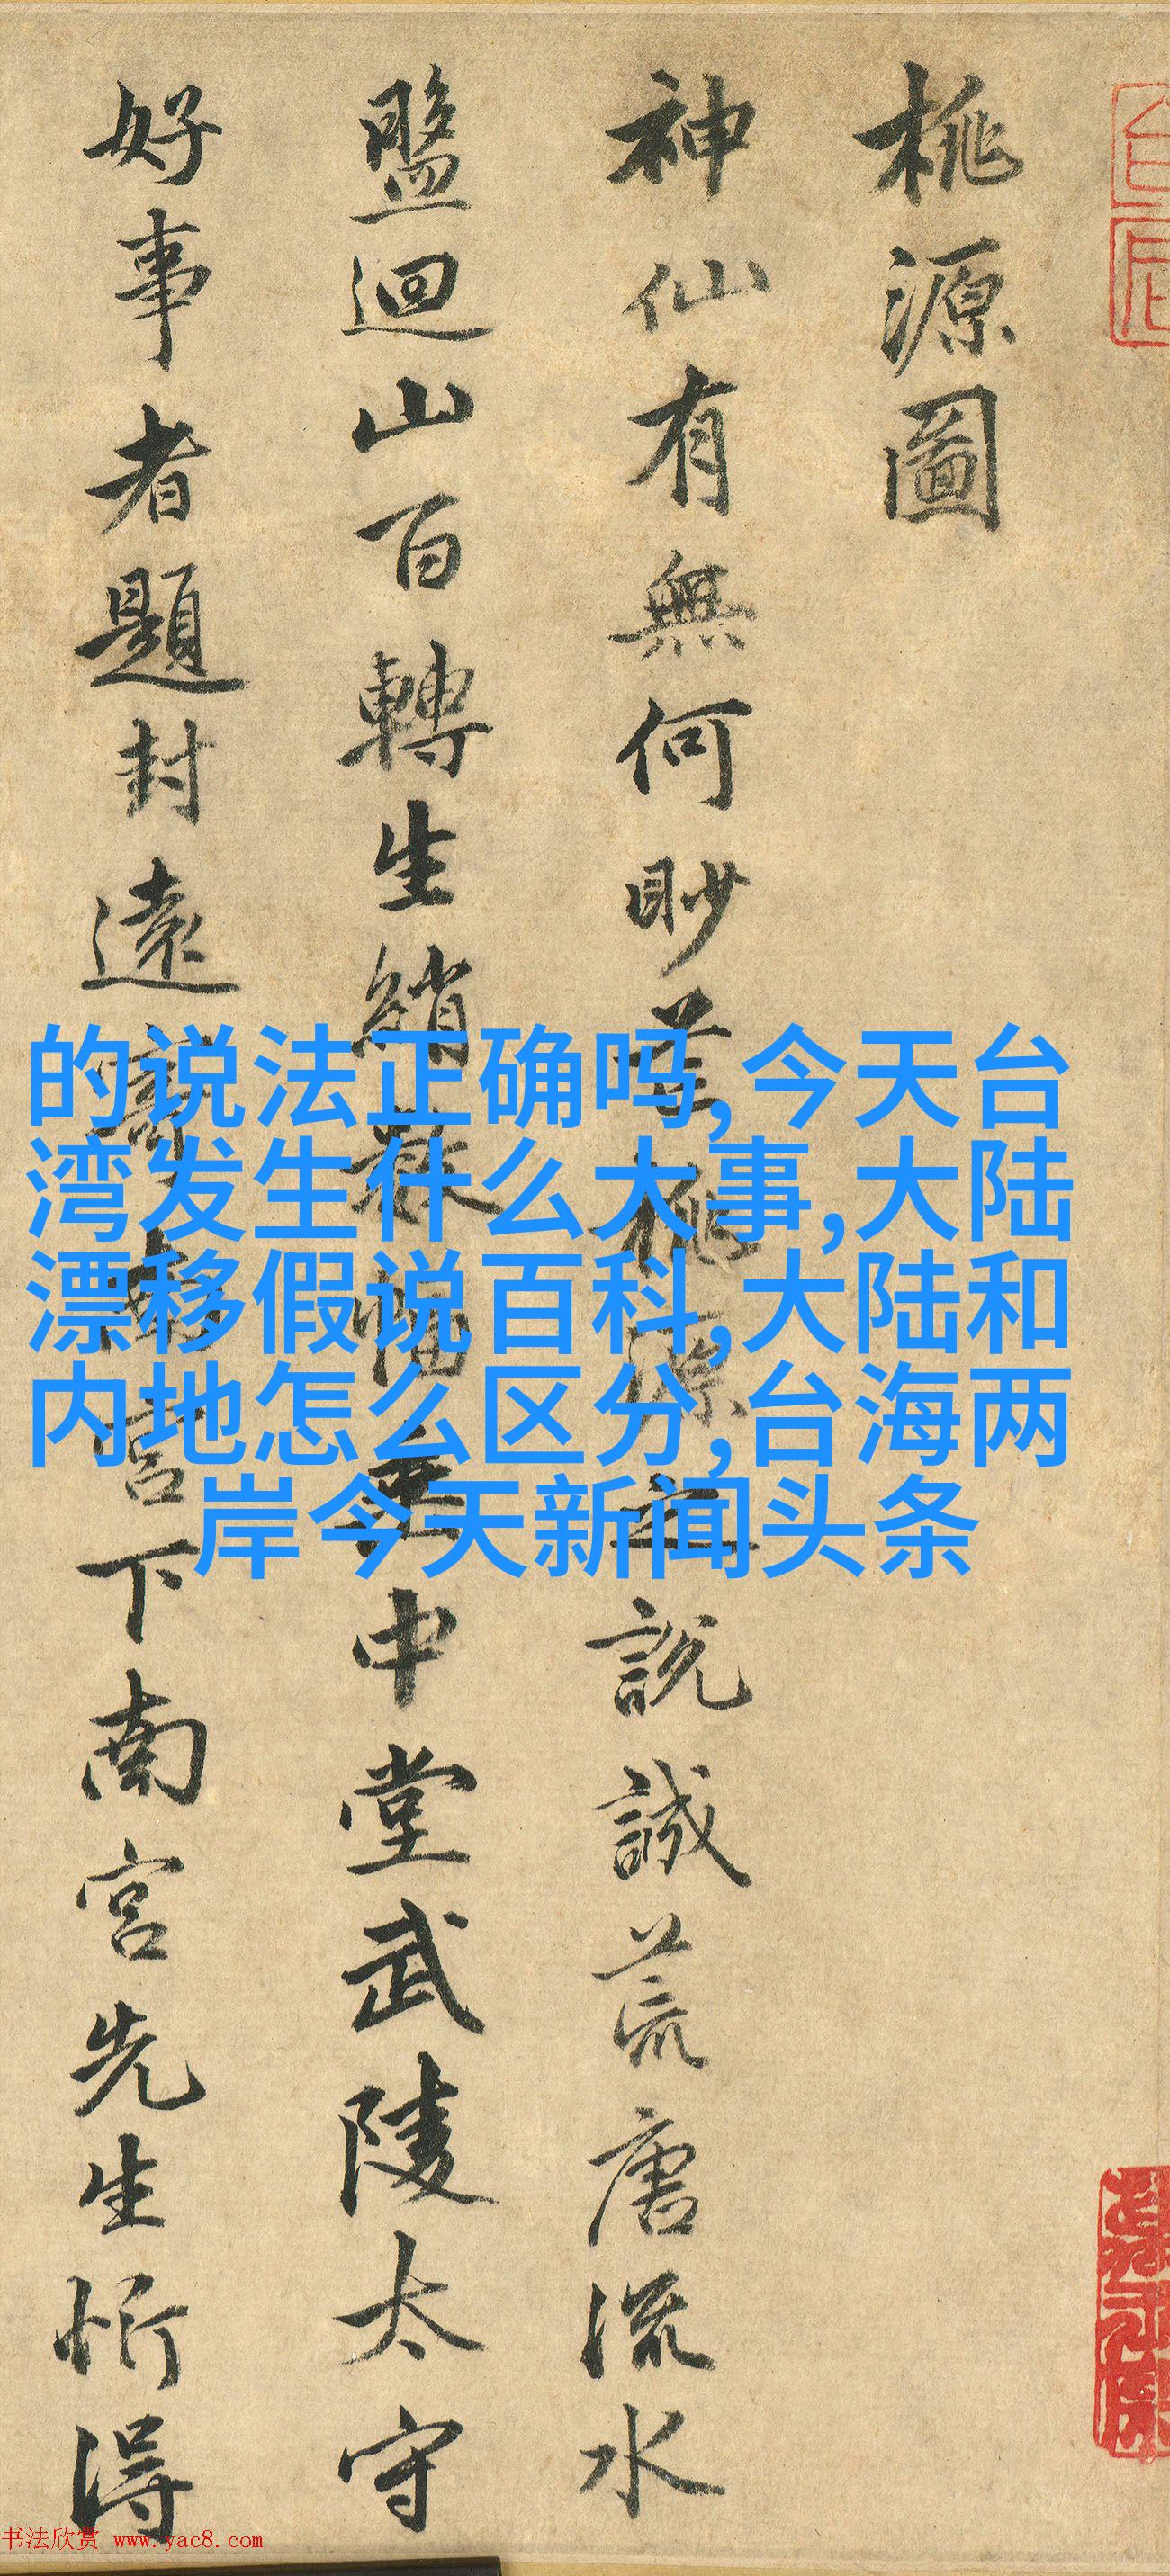 桃源圖
神仙有無何眇芒桃源之說誠荒唐流水
盤迴山百轉生綃數幅垂中堂武陵太守
好事者題封遠寄南宮下南宮先生忻得
的说法正确吗,今天台
湾发生什么大事,大陆
漂移假说百科,大陆和
内地怎么区分,台海两
岸今天新闻头条
书法欣赏 www.yac8.com